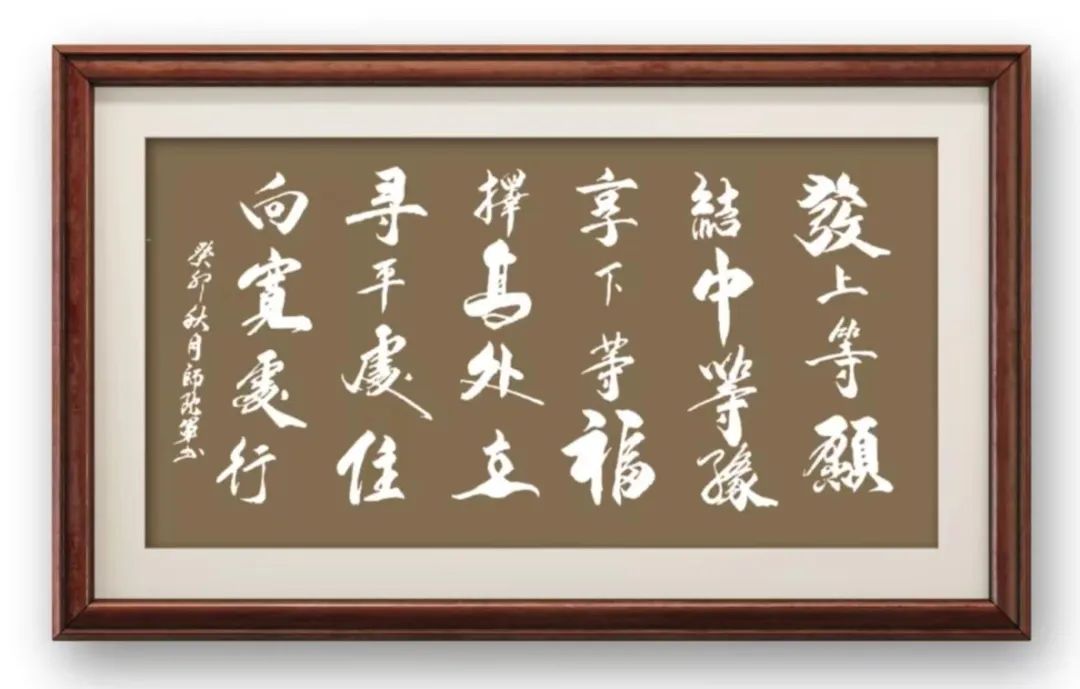 發上等願
結中等緣
享下等福
擇高处立
尋平處住
向寬處行
癸卯秋月師